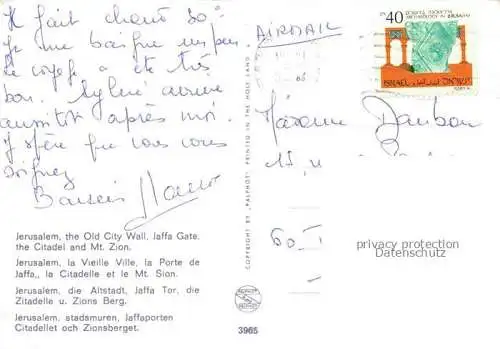 Il fait chaud 30°
Je me baigne un peu
Le voyage a été très
bon. Sylvie arrive
aussitôt après moi.
J'espère que vous vous
soignez
Baisers
AIRMAIL
40
ISRAEL
Madame
15,
60
privacy protecting
Datenschutz
COPYRIGHT BY "PALPHOT" PRINTED IN THE HOLY LAND
Jerusalem, the Old City Wall, Jaffa Gate,
the Citadel and Mt. Zion.
Jerusalem, la Vieille Ville, la Porte de
Jaffa,, la Citadelle et le Mt. Sion.
Jerusalem, die Altstadt, Jaffa Tor, die
Zitadelle u. Zions Berg.
Jerusalem, stadsmuren, Jaffaporten
Citadellet och Zionsberget.
3965